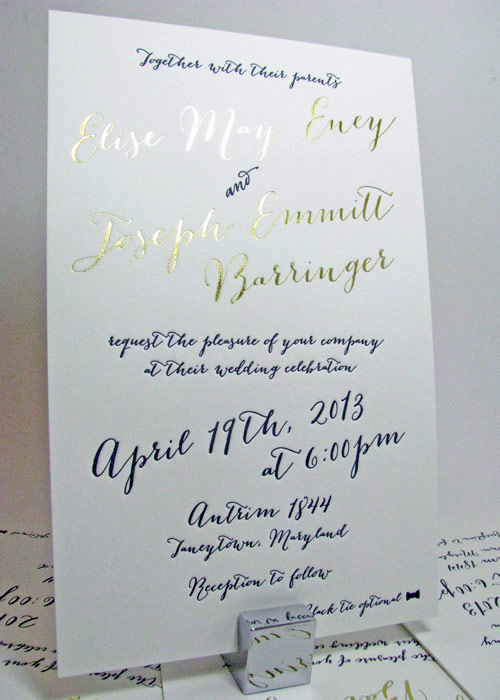 Together with their parents
Elise May Eney
and
Joseph Emmitt
Barringer
request the pleasure of your company
at their wedding celebration
April 19th, 2013
at 6:00pm
Antrim 1844
Taneytown, Maryland
Reception to follow
Black tie optional